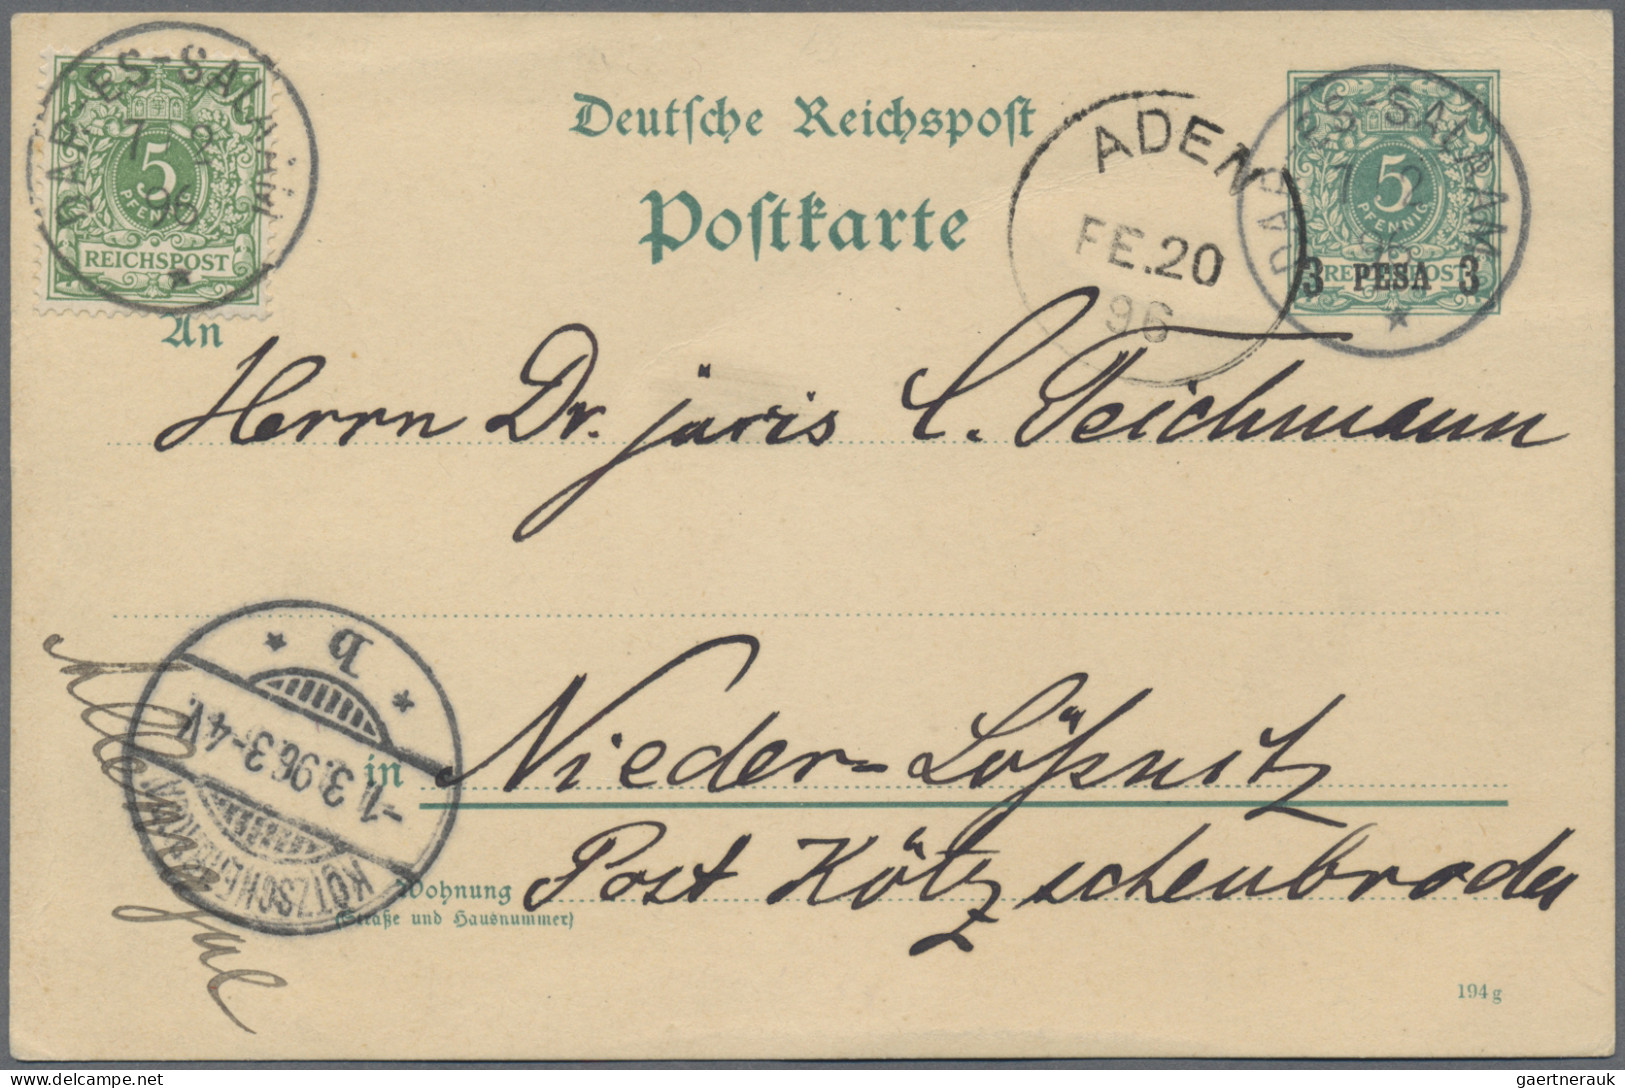 DAR-ES-SALAAM
7 2
96
5
PFENNIG
REICHSPOST
Deutsche Reichspost
Postkarte
ADEN
FE.20
96
DAR-ES-SALAAM
7 2
96
5
PFENNIG
REICHSPOST
3 PESA 3
An
Herrn Dr. juris C. Teichmann
b
-1.3.96.3-4V.
KÖTZSCHENBRODA
in Nieder-Lößnitz
Post Kötzschenbroda
Wohnung
(Straße und Hausnummer)
194 g
gaertnerauk